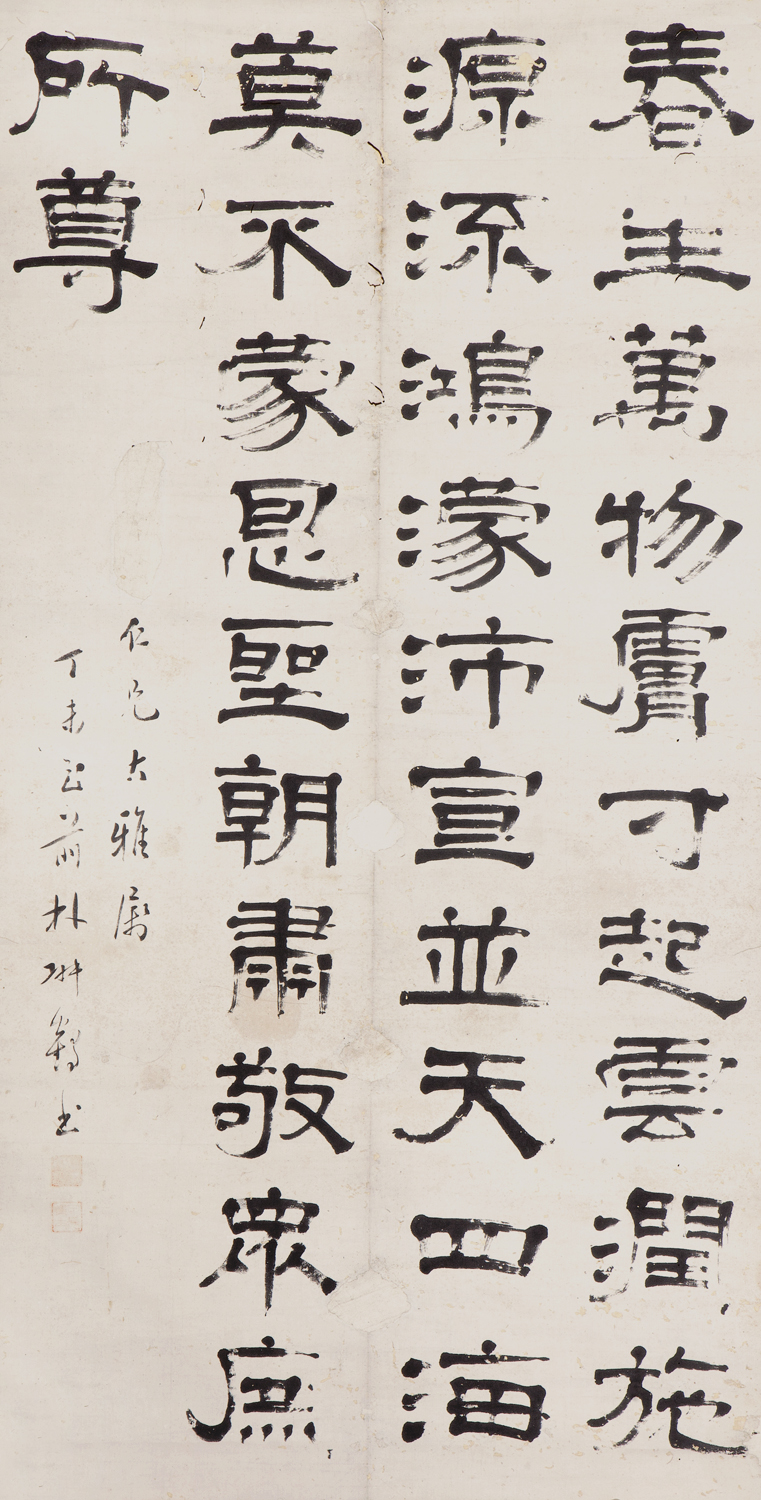 春生萬物膚寸起雲潤施
源流鴻濛沛宣並天四海
莫不蒙恩聖朝肅敬衆庶
所尊
仁兄大雅屬
丁未前朴書